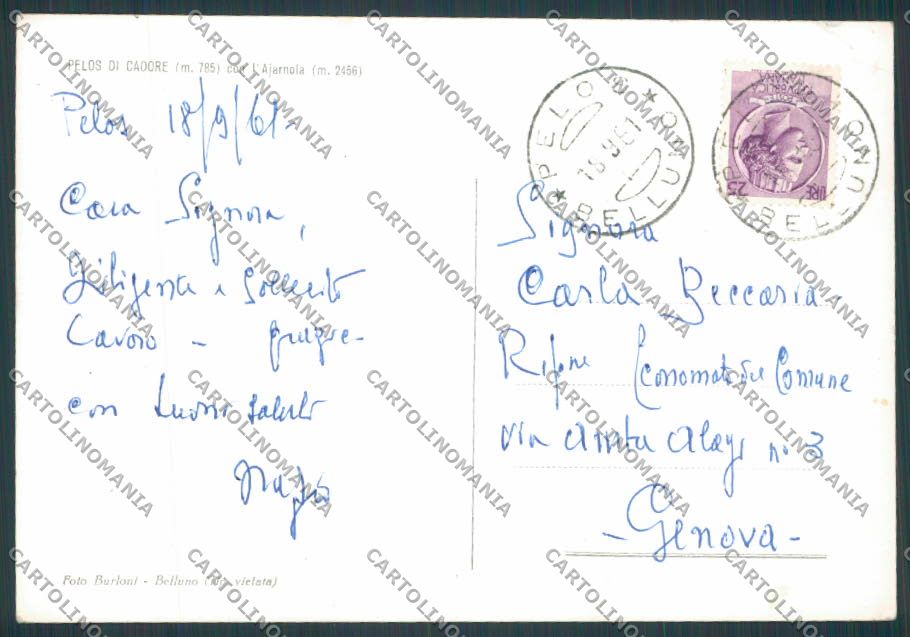 PELOS DI CADORE (m. 785) con l'Ajarnola (m. 2456)
Pelos 18/9/61
Cara Signora,
Diligente e sollecito
lavoro -
con buoni saluti
PELOS * BELLUNO *
18.9.61
BELLUNO
LIRE 25
Signora
Carla Beccaria
Economato del Comune
via Amba Alagi no 3
- Genova -
Foto Burloni - Belluno (rip. vietata)
CARTOLINOMANIA